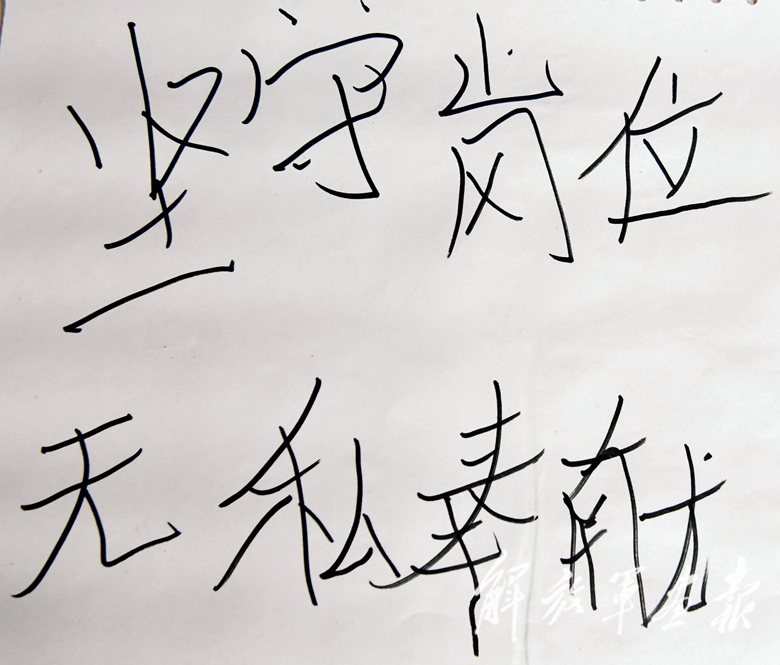 坚守岗位
无私奉献
解放军画报